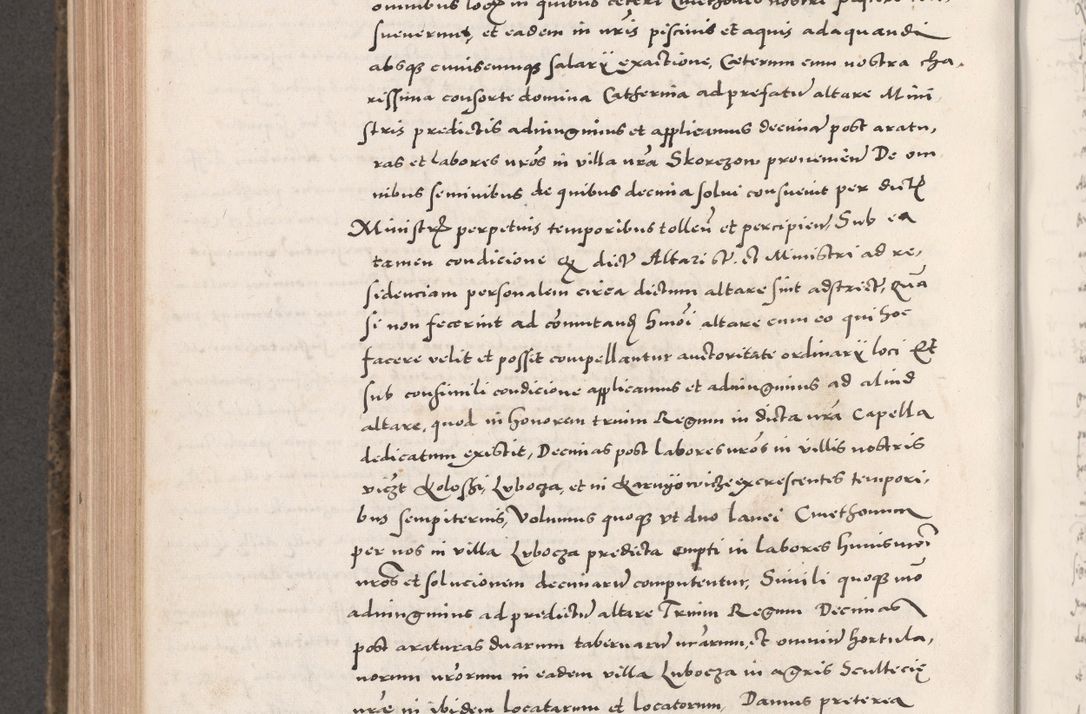 omnibus locꝫ in quibus ceteri Cmethones nostri
sueverunt, et eadem in nr̃is piscinis et aquis adaquandi
absqꝫ cuiuscumqꝫ salarÿ exactione, Cæterum cum nostra cha,
rissima consorte domina Catherina ad prefatũ altare Mini
stris predictis adiungimus et applicamus decimã post aratu,
ras et labores nr̃os in villa nr̃a Skorczow provenien̄ De om
nibus seminibus de quibus decima solui consuevit per dictꝝ
Ministrꝝ perpetuis temporibus tollen̄ et percipien̄, Sub ea
tamen condicione qꝫ dict̃ Altaristę et Ministri ad re,
sidenciam personalem circa dictum altare sint adstrict̃, Qua
si non fecerint ad cõmutand̃ hm̃oi altare cum eo qui hoc
facere velit et possit compellantur auctoritate ordinarÿ loci Et
sub consimili condicione applicamus et adiungimus ad aliud
altare, quod in honorem trium Regum in dicta nr̃a Capella
dedicatum existit, Decimas post labores nr̃os in villis nostris
viczt Koloski, Lubocza, et in Karnÿowicze excrescentes tempori,
bus sempiternis, Volumus quoqꝫ vt duo lanei Cmethonum
per nos in villa Lubocza predicta empti in labores huiusmõi
nr̃os et solucionem decimarũ computentur, Simili quoqꝫ mõ
adiungimus ad predictũ altare Trium Regum Decimas
post araturas duarum tabernarũ nr̃arum, et omniũ hortula,
norum nr̃orum in eadem villa Lubocza in agris Scultecię
nr̃æ in ibidem locatarum et locatorum, Damus preterea